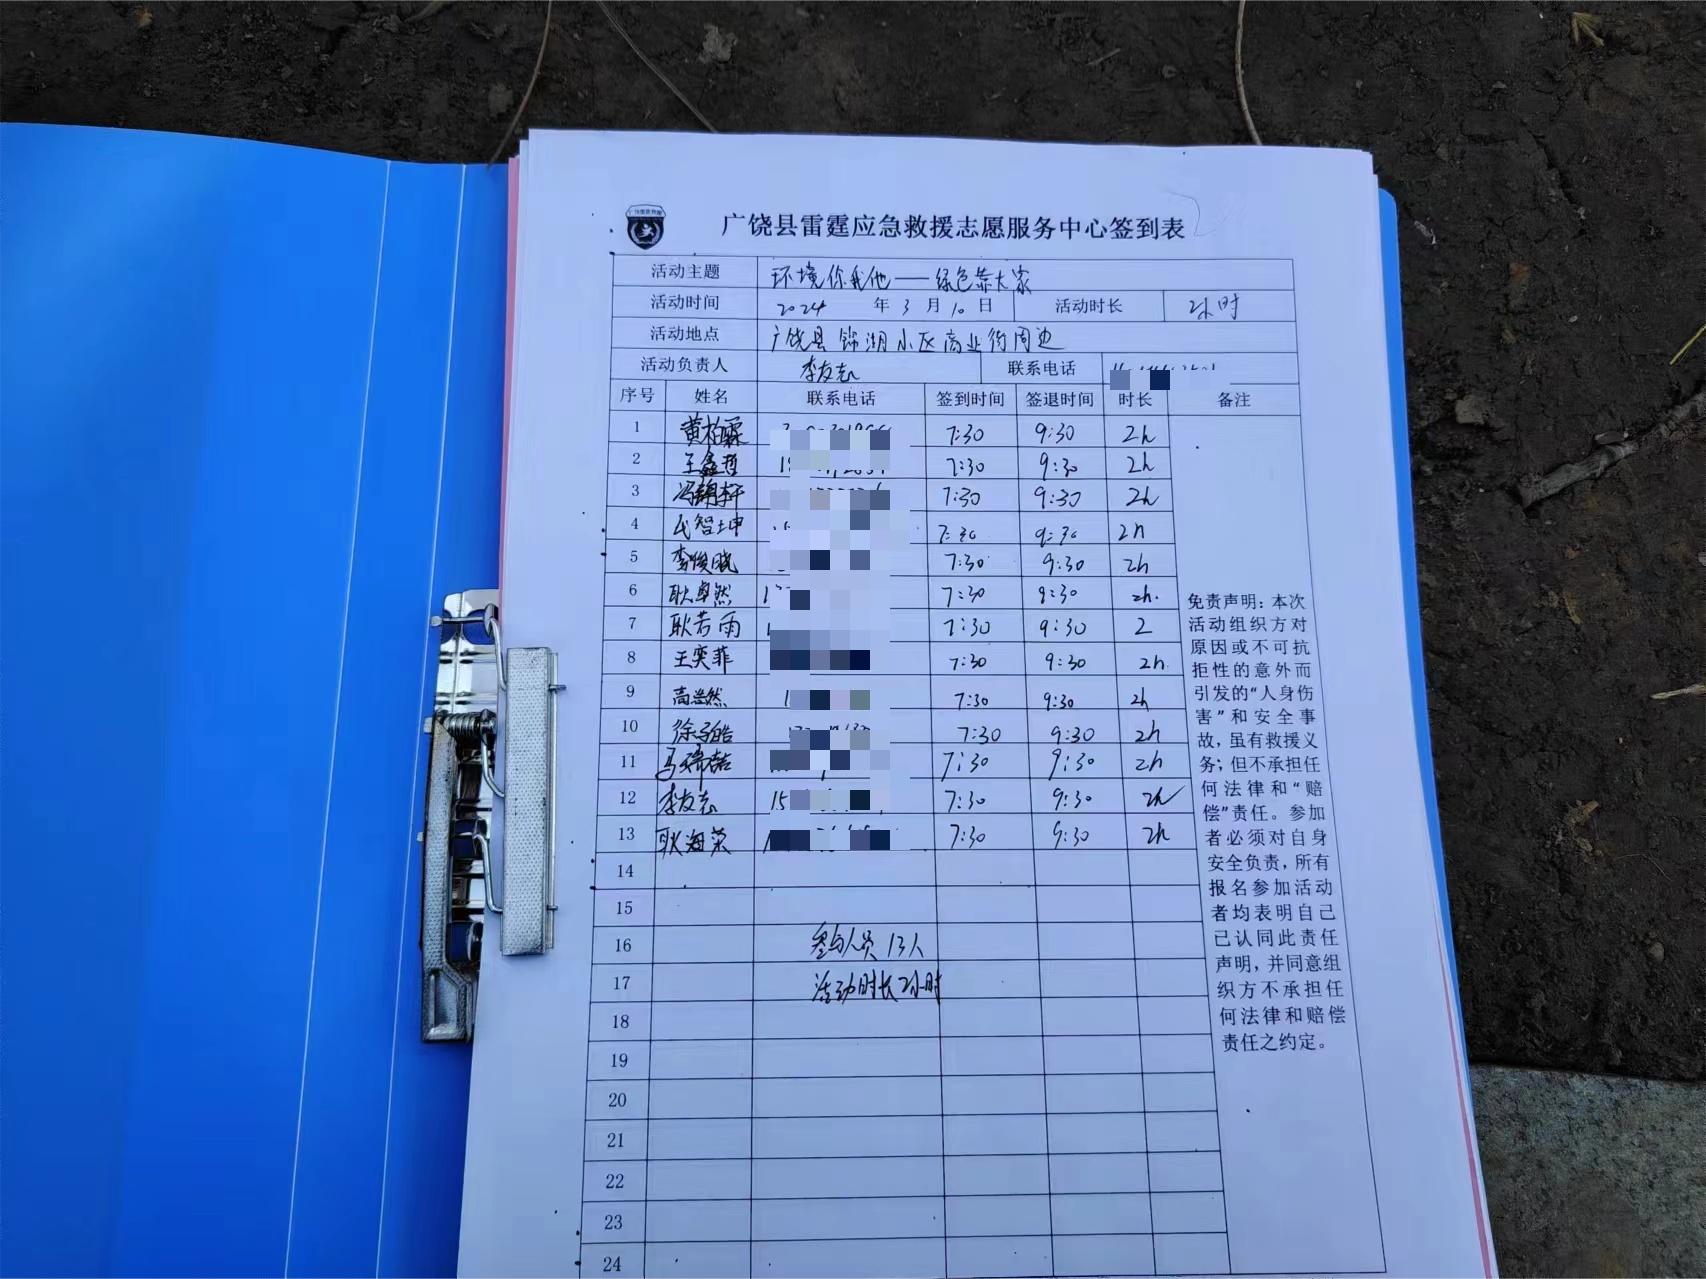 广饶县雷霆应急救援志愿服务中心签到表
活动主题 环境你我他——绿色靠大家
活动时间 2024 年 3 月 10 日 活动时长 2小时
活动地点 广饶县锦湖小区商业街周边
活动负责人 李友志 联系电话
序号 姓名 联系电话 签到时间 签退时间 时长 备注
1 黄柏霖 7:30 9:30 2h
2 王鑫哲 7:30 9:30 2h
3 7:30 9:30 2h
4 智坤 7:30 9:30 2h
5 李俊晓 7:30 9:30 2h
6 耿卓然 7:30 9:30 2h.
7 耿若雨 7:30 9:30 2
8 王奕菲 7:30 9:30 2h.
9 高浩然 7:30 9:30 2h
10 徐子皓 7:30 9:30 2h
11 马瑞喆 7:30 9:30 2h
12 李友志 15 7:30 9:30 2h
13 耿海荣 7:30 9:30 2h
14
15
16 参与人员13人
17 活动时长2小时
18
19
20
21
22
23
24
免责声明：本次
活动组织方对
原因或不可抗
拒性的意外而
引发的“人身伤
害”和安全事
故，虽有救援义
务；但不承担任
何法律和“赔
偿”责任。参加
者必须对自身
安全负责，所有
报名参加活动
者均表明自己
已认同此责任
声明，并同意组
织方不承担任
何法律和赔偿
责任之约定。